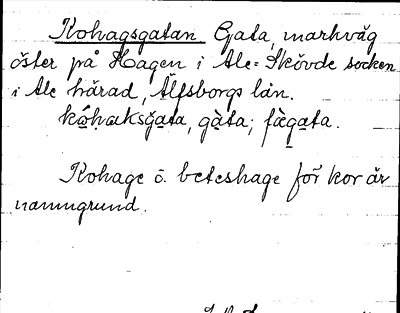 Kohagsgatan Gata, markväg
öster på Hagen i Ale-Skövde socken
i Ale härad, Älfsborgs län.
kóhaksgata, gàta; fægata.
Kohage ɔ: beteshage för kor är
namngrund.